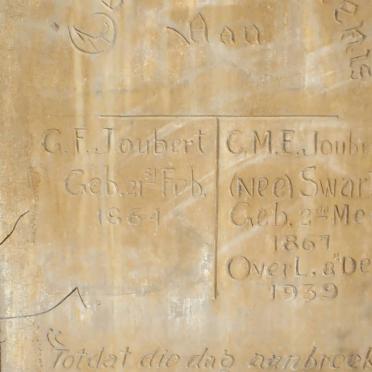 Van
G. F. Joubert
Geb. 21st Feb.
1864
C. M. E. Joube
(nee) Swar
Geb. 2nd Me
1867
OverL. 8n De
1939
Totdat die dag aanbreek